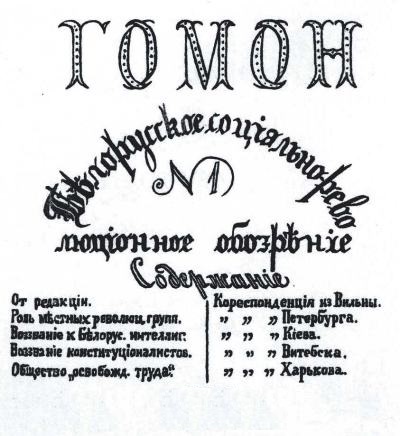 ГОМОН
Бѣлорусское соціально-рево
№1
люціонное обозрѣніе
Содержаніе
От редакціи.
Роль мѣстных революц. групп.
Воззваніе к бѣлорус. интеллиг.
Воззваніе конституціоналистов.
Общество „освобожд. труда".
Кореспонденція из Вильны.
„ „ „ Петербурга.
„ „ „ Кіева.
„ „ „ Витебска.
„ „ „ Харькова.